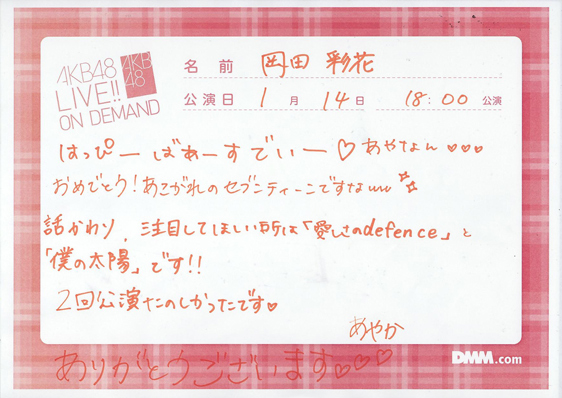 AKB48
LIVE!!
ON DEMAND
AKB
48
名前 岡田 彩花
公演日 1月 14日 18:00 公演
はっぴーばあーすでいー♡あやなん♡♡♡
おめでとう!あこがれのセブンティーンですなww
話かわり、注目してほしい所は「愛しさのdefence」と
「僕の太陽」です!!
2回公演たのしかったです♡
あやか
DMM.com
ありがとうございます♡♡♡